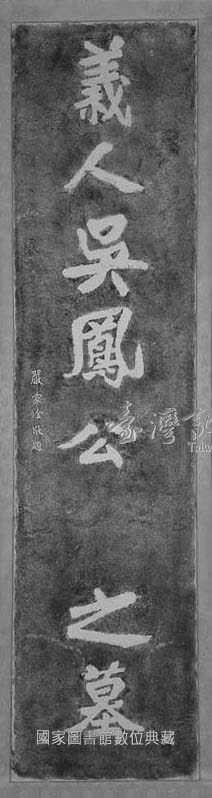 義人吳鳳公之墓
嚴家淦敬題
臺灣記
Taiw
國家圖書館數位典藏